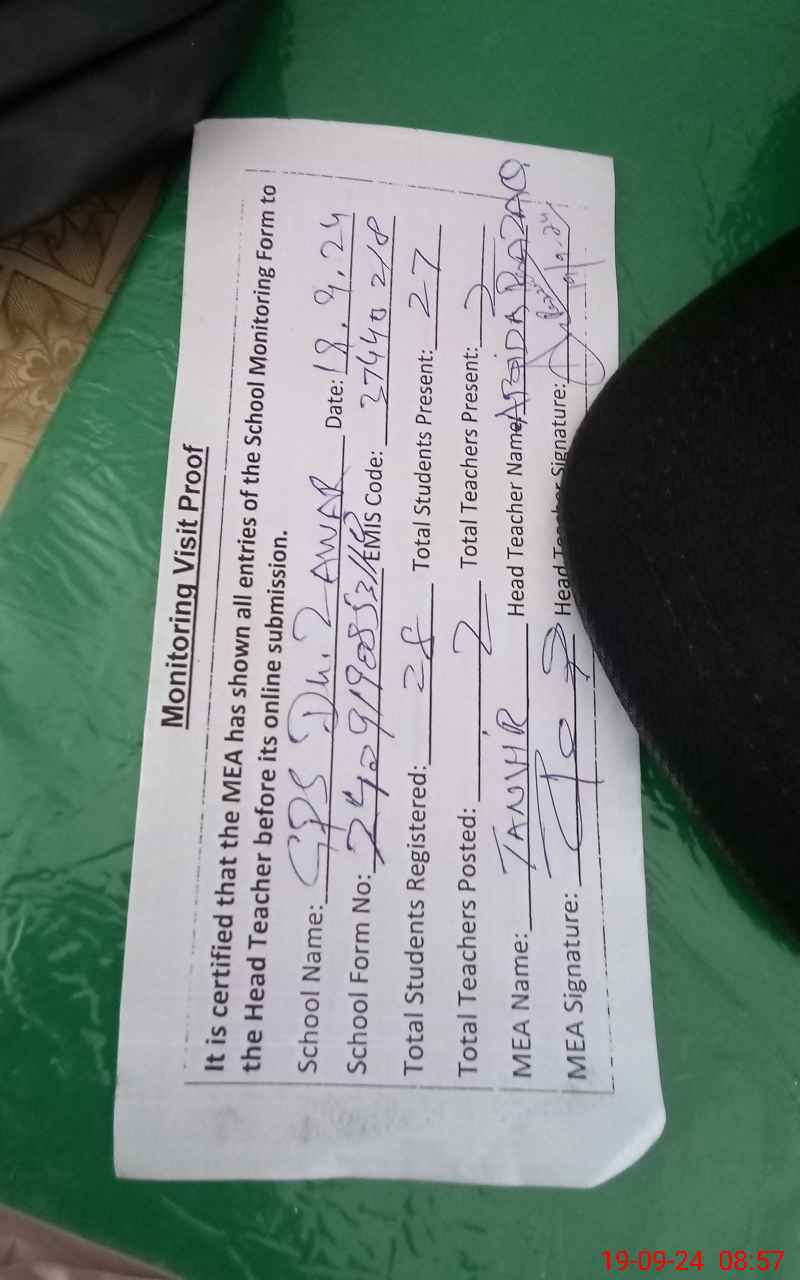 Monitoring Visit Proof
It is certified that the MEA has shown all entries of the School Monitoring Form to
the Head Teacher before its online submission.
School Name: GPS Dh. ZAWAR Date: 18.9.24
School Form No: EMIS Code: 37440218
Total Students Registered: 28 Total Students Present: 27
Total Teachers Posted: 2 Total Teachers Present: 2
MEA Name: TANVIR Head Teacher Name: ABIDA RAZAQ
MEA Signature: Head Teacher Signature:
19.9.24
19-09-24 08:57